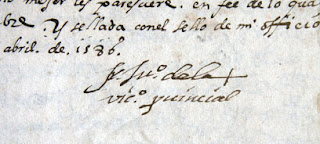 mejor les paresciere. en fee de lo qua
bre. y sellada conel sello de mi officio
abril. de. 1586.
fr. Juº. dela +
vicº. puincial